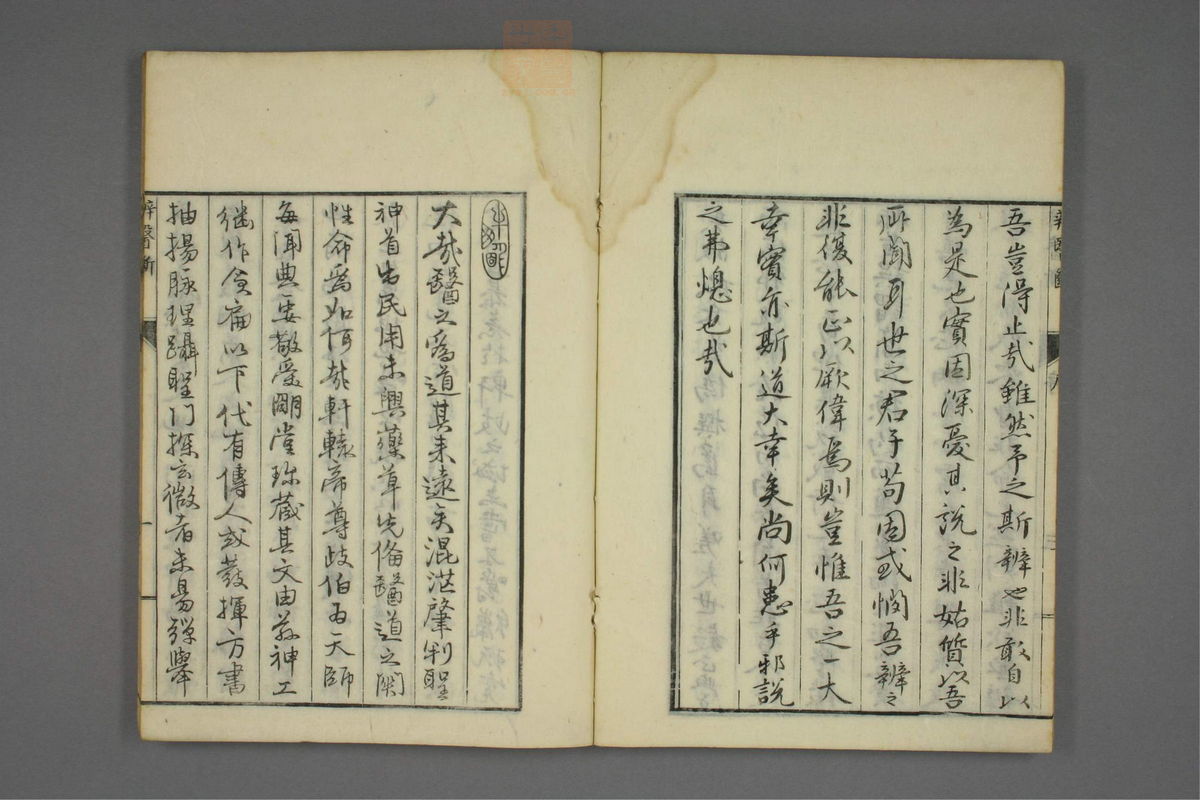 吾豈得止哉雖然予之斯辨也非敢自以
為是也實因深憂其說之非姑質以吾
所聞耳世之君子苟固或憫吾辨之
非復能正以厥偉焉則豈惟吾之一大
幸實亦斯道大幸矣尚何患乎邪說
之弗熄也哉
大哉醫之爲道其来遠矣混茫肇判聖
神首出民用未興藥草先備醫道之関
性命爲如何哉軒轅帝尊岐伯為天師
每聞典要敬受明堂珎蔵其文由茲神工
継作倉扁以下代有傳人或發揮方書
抽揚脉理躡聖門探玄微者未易殫舉
辨醫斷